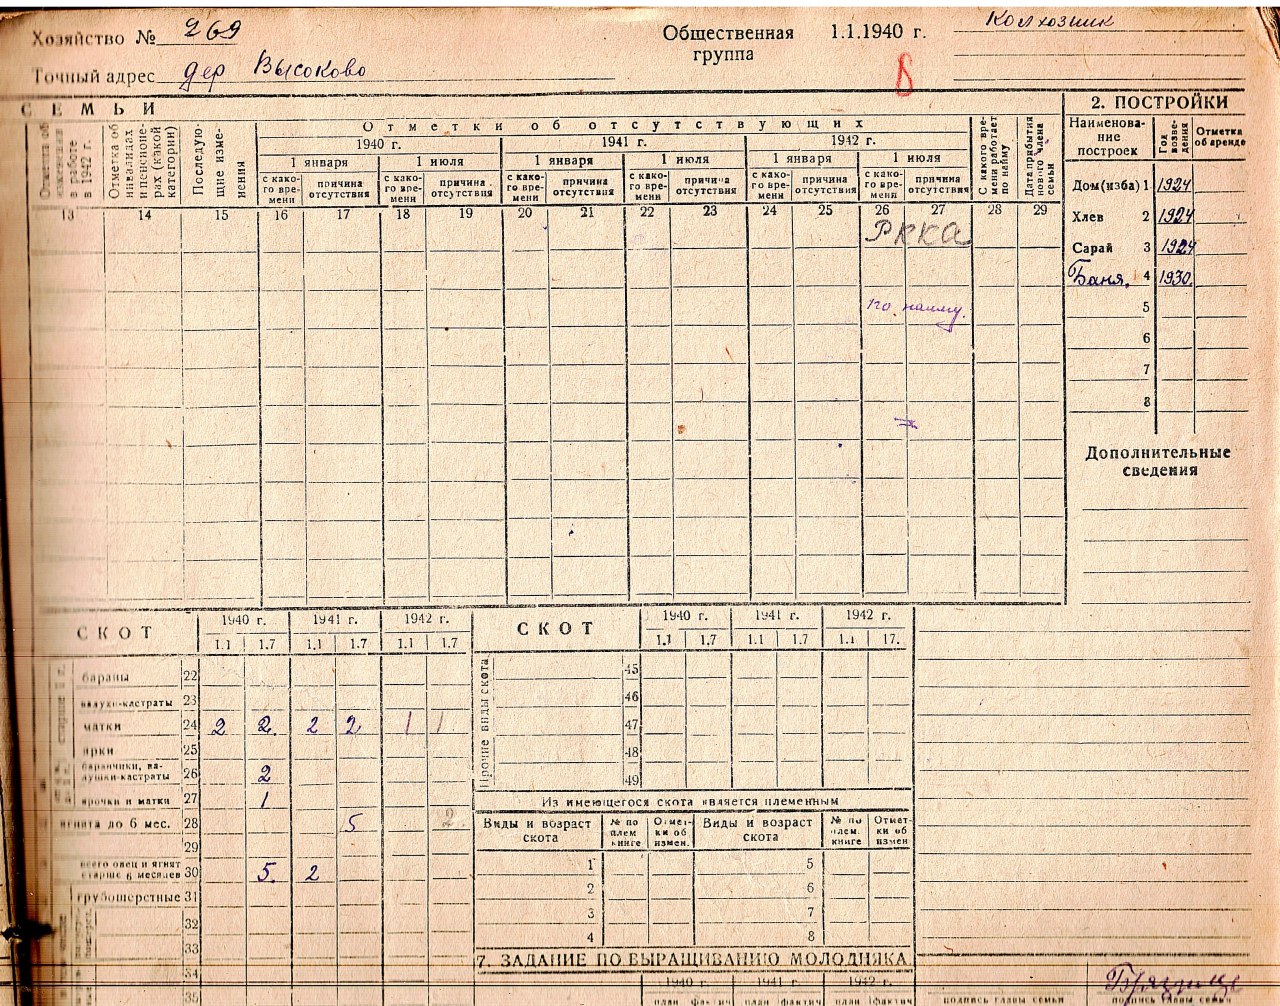 Хозяйство № 269
Общественная группа 1.1.1940 г. Колхозник
Точный адрес дер Высоково
8
СЕМЬИ
Отметка об инвалидах и пенсионерах (какой категории)
Последующие изменения
Отметки об отсутствующих
1940 г. 1941 г. 1942 г.
1 января 1 июля 1 января 1 июля 1 января 1 июля
с какого времени причина отсутствия с какого времени причина отсутствия с какого времени причина отсутствия с какого времени причина отсутствия с какого времени причина отсутствия с какого времени причина отсутствия
С какого времени работает по найму
Дата прибытия нового члена семьи
13 14 15 16 17 18 19 20 21 22 23 24 25 26 27 28 29
РККА
по найму.
2. ПОСТРОЙКИ
Наименование построек Год возведения Отметка об аренде
Дом(изба) 1 1924
Хлев 2 1924
Сарай 3 1924
Баня. 4 1930.
5
6
7
8
Дополнительные сведения
СКОТ 1940 г. 1941 г. 1942 г.
1.1 1.7 1.1 1.7 1.1 1.7
бараны 22
валухи-кастраты 23
матки 24 2 2. 2 2 1 1
ярки 25
баранчики, валушки-кастраты 26 2
ярочки и матки 27 1
ягнята до 6 мес. 28 5 2
29
всего овец и ягнят старше 6 месяцев 30 5. 2
грубошерстные 31
32
33
34
35
СКОТ 1940 г. 1941 г. 1942 г.
1.1 1.7 1.1 1.7 1.1 17.
Прочие виды скота
45
46
47
48
49
Из имеющегося скота является племенным
Виды и возраст скота № по плем книге Отметки об измен. Виды и возраст скота № по плем. книге Отметки об измен
1 5
2 6
3 7
4 8
7. ЗАДАНИЕ ПО ВЫРАЩИВАНИЮ МОЛОДНЯКА
1940 г. 1941 г. 1942 г.
план фактич план фактич план фактич
подпись главы семьи подпись главы семьи